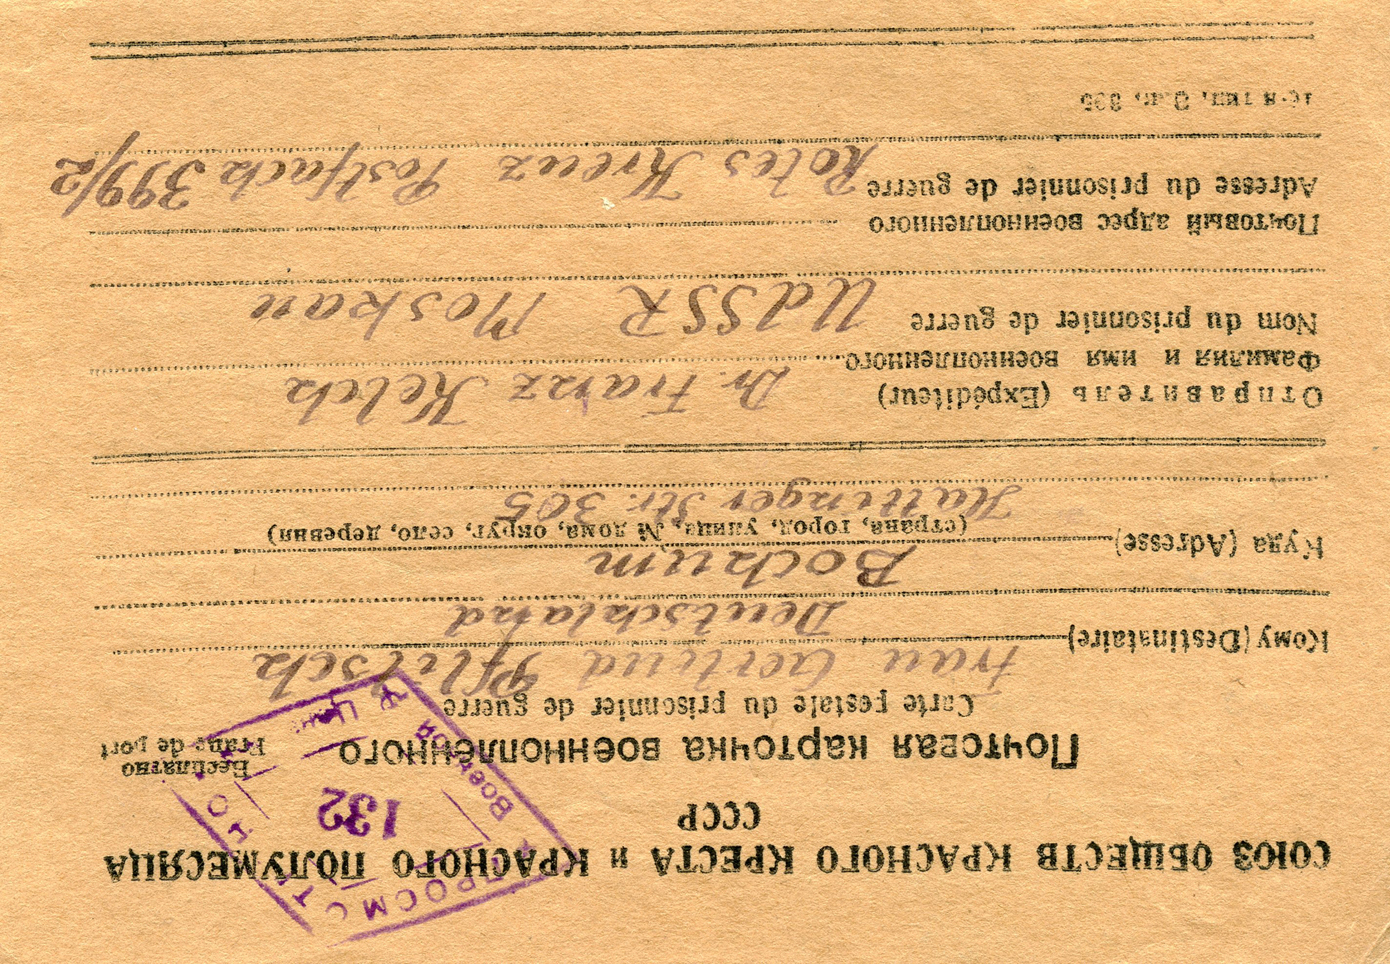 СОЮЗ ОБЩЕСТВ КРАСНОГО КРЕСТА и КРАСНОГО ПОЛУМЕСЯЦА
СССР
Почтовая карточка военнопленного
Carte postale du prisonnier de guerre
Бесплатно
Franc de port
ПРОСМОТРЕНО
Военной
132
Кому (Destinataire) Frau Gertrud Pflitsch
Deutschland
Куда (Adresse) Bochum
(страна, город, улица, № дома, округ, село, деревня)
Hattinger Str. 305
Отправитель (Expéditeur)
Фамилия и имя военнопленного Dr. Franz Kelch
Nom du prisonnier de guerre UdSSR Moskau
Почтовый адрес военнопленного
Adresse du prisonnier de guerre Rotes Kreuz Postfach 399/2
16-я тип. З.к. 895